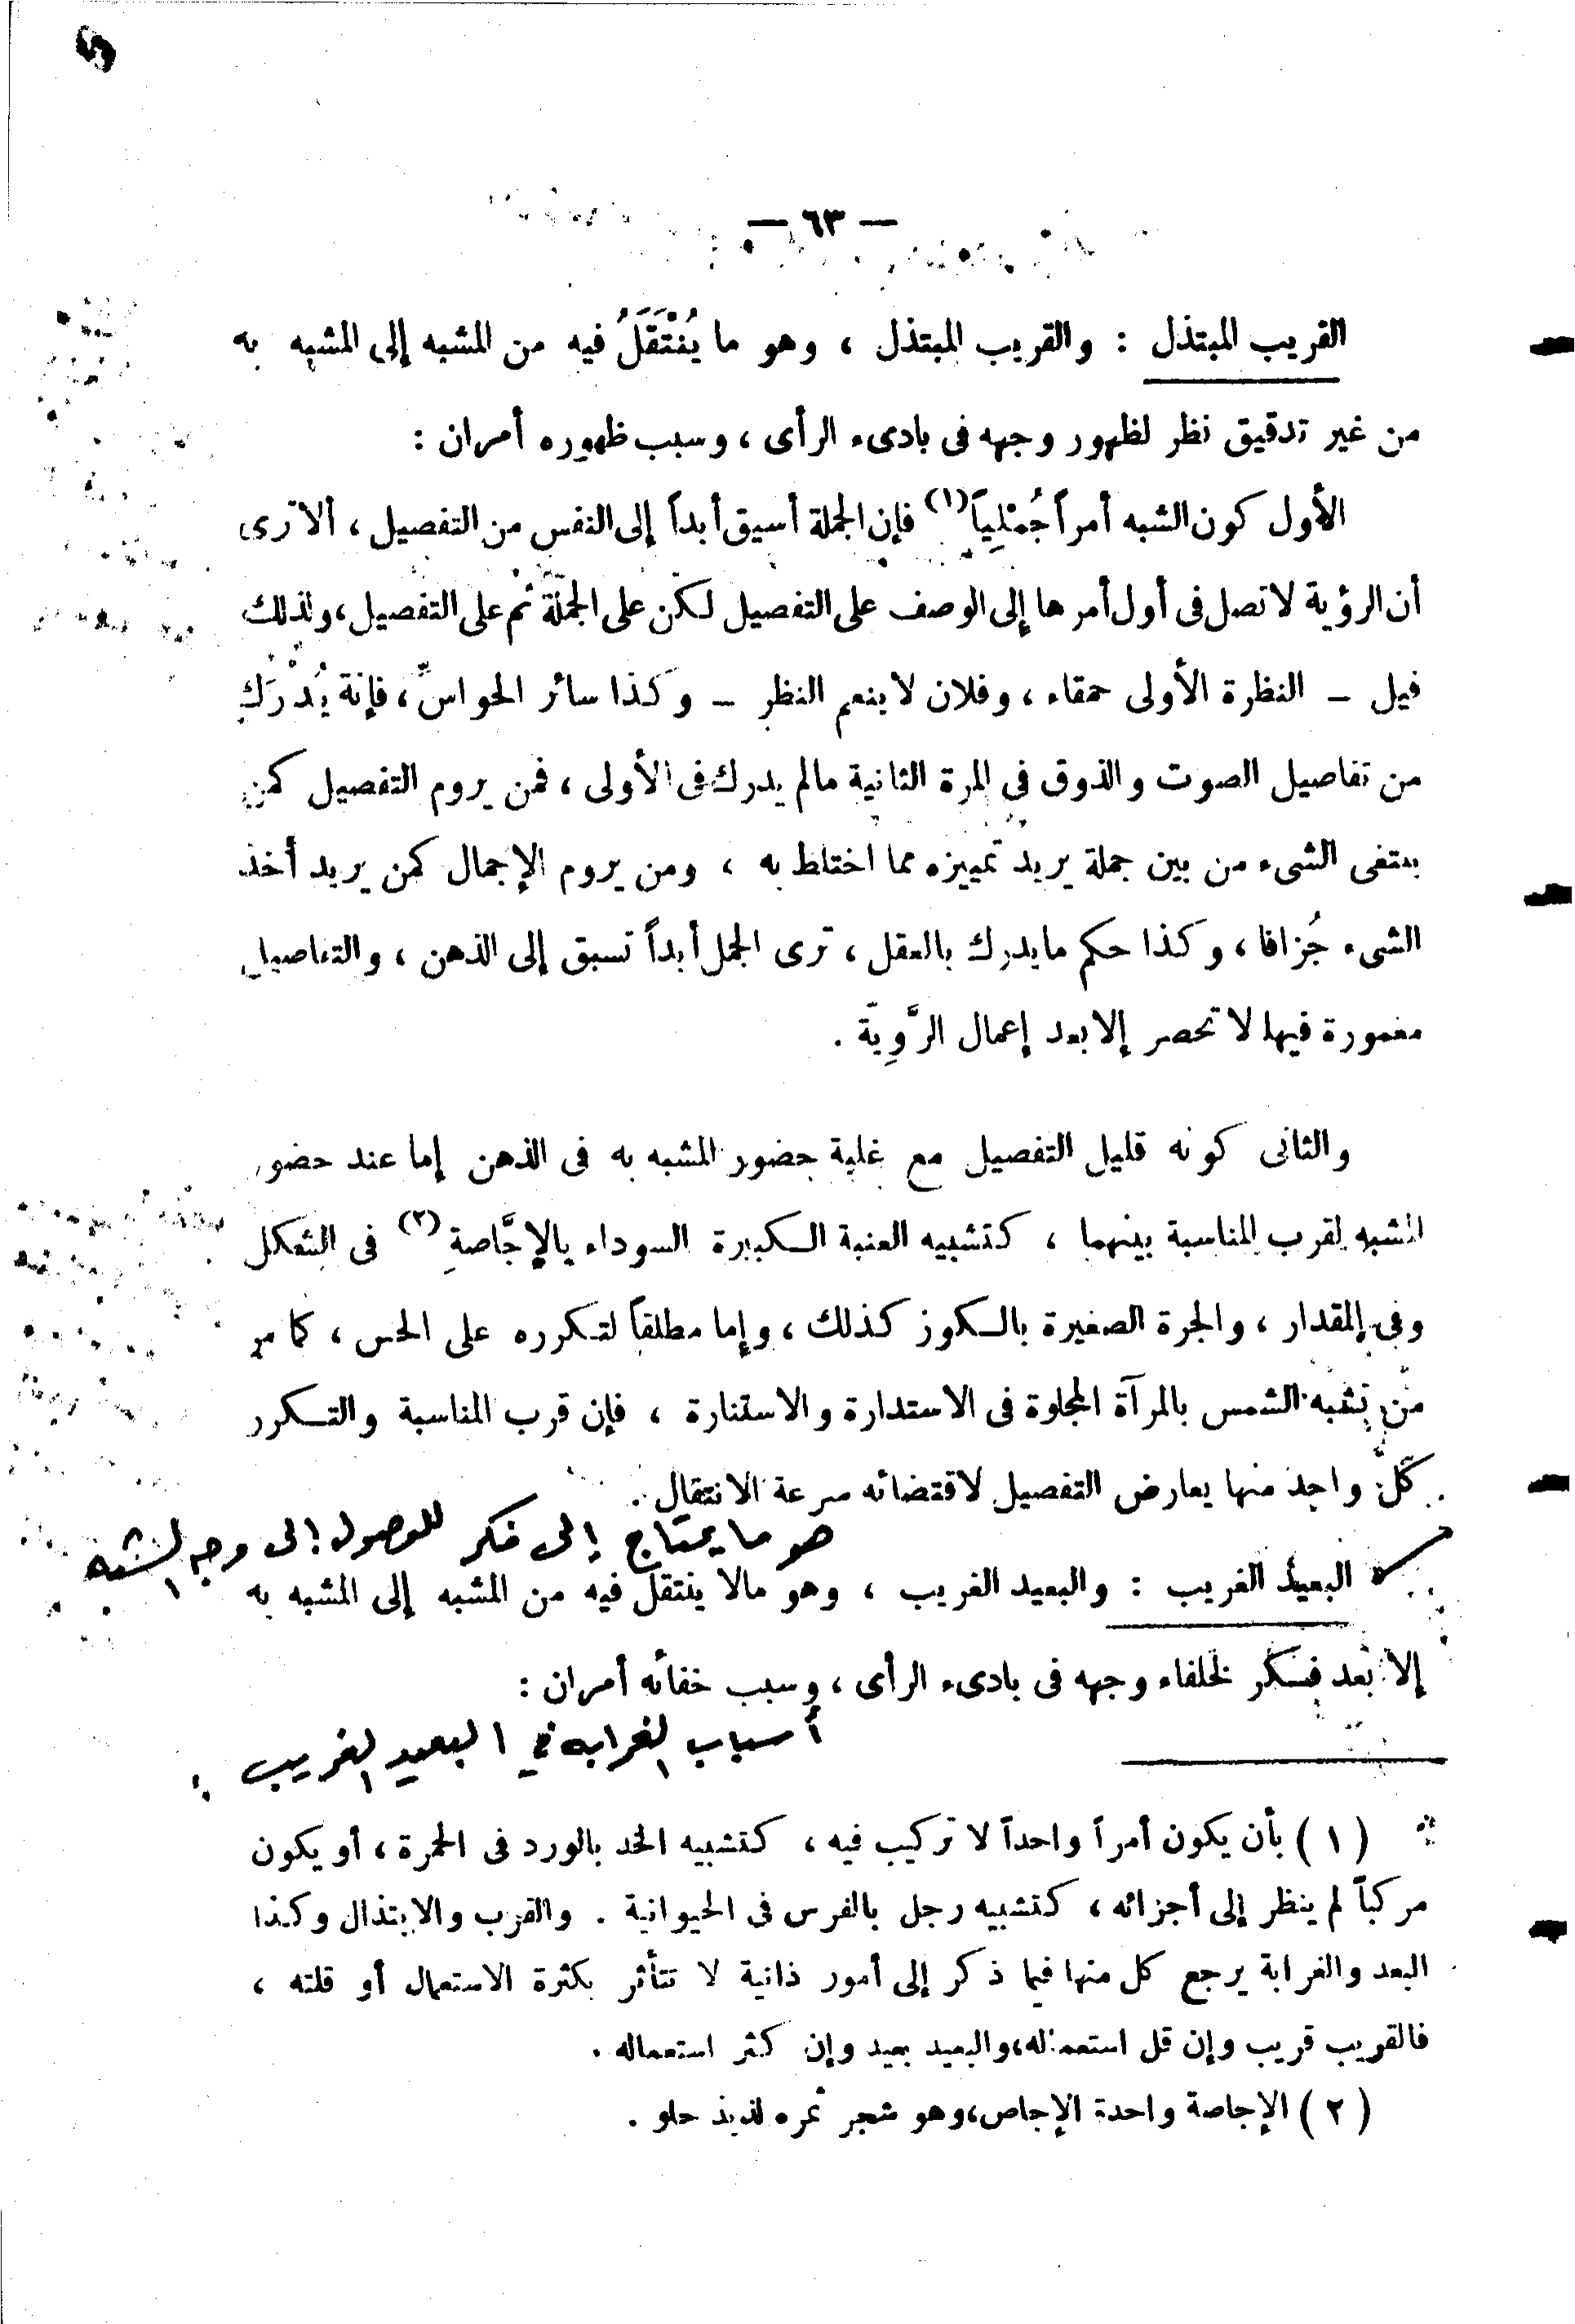 — ٦٣ —
القريب المبتذل : والقريب المبتذل ، وهو ما يُنْتَقَلُ فيه من المشبه إلى المشبه به
من غير تدقيق نظر لظهور وجهه فى بادىء الرأى ، وسبب ظهوره أمران :
الأول كون الشبه أمراً جُمْلِياً (١) فإن الجملة أسبق أبداً إلى النفس من التفصيل ، ألا ترى
أن الرؤية لا تصل فى أول أمرها إلى الوصف على التفصيل لكن على الجملة ثم على التفصيل ، ولذلك
قيل – النظرة الأولى حمقاء ، وفلان لا ينعم النظر – وكذا سائر الحواسِّ ، فإنه يُدْرَك
من تفاصيل الصوت والذوق فى المرة الثانية مالم يدرك فى الأولى ، فمن يروم التفصيل كمن
يبتغى الشىء من بين جملة يريد تمييزه مما اختلط به ، ومن يروم الإجمال كمن يريد أخذ
الشىء جُزافا ، وكذا حكم ما يدرك بالعقل ، ترى الجمل أبداً تسبق إلى الذهن ، والتفاصيل
مغمورة فيها لا تحصر إلا بعد إعمال الرَّوِيَّة .
والثانى كونه قليل التفصيل مع غلبة حضور المشبه به فى الذهن إما عند حضور
المشبه لقرب المناسبة بينهما ، كتشبيه العنبة الكبيرة السوداء بالإجَّاصةِ (٢) فى الشكل
وفى المقدار ، والجرة الصغيرة بالكوز كذلك ، وإما مطلقاً لتكرره على الحس ، كما مر
من تشبه الشمس بالمرآة المجلوة فى الاستدارة والاستنارة ، فإن قرب المناسبة والتكرر
كلّ واحد منها يعارض التفصيل لاقتضائه سرعة الانتقال .
هو ما يحتاج إلى فكر للوصول إلى وجه الشبه
البعيد الغريب : والبعيد الغريب ، وهو مالا ينتقل فيه من المشبه إلى المشبه به
إلا بعد فكر لخفاء وجهه فى بادىء الرأى ، وسبب خفائه أمران :
أسباب الغرابه في البعيد الغريب :
(١) بأن يكون أمراً واحداً لا تركيب فيه ، كتشبيه الخد بالورد فى الحمرة ، أو يكون
مركباً لم ينظر إلى أجزائه ، كتشبيه رجل بالفرس فى الحيوانية . والقرب والابتذال وكذا
البعد والغرابة يرجع كل منها فيما ذكر إلى أمور ذاتية لا تتأثر بكثرة الاستعمال أو قلته ،
فالقريب قريب وإن قل استعماله ، والبعيد بعيد وإن كثر استعماله .
(٢) الإجاصة واحدة الإجاص ، وهو شجر ثمره لذيذ حلو .